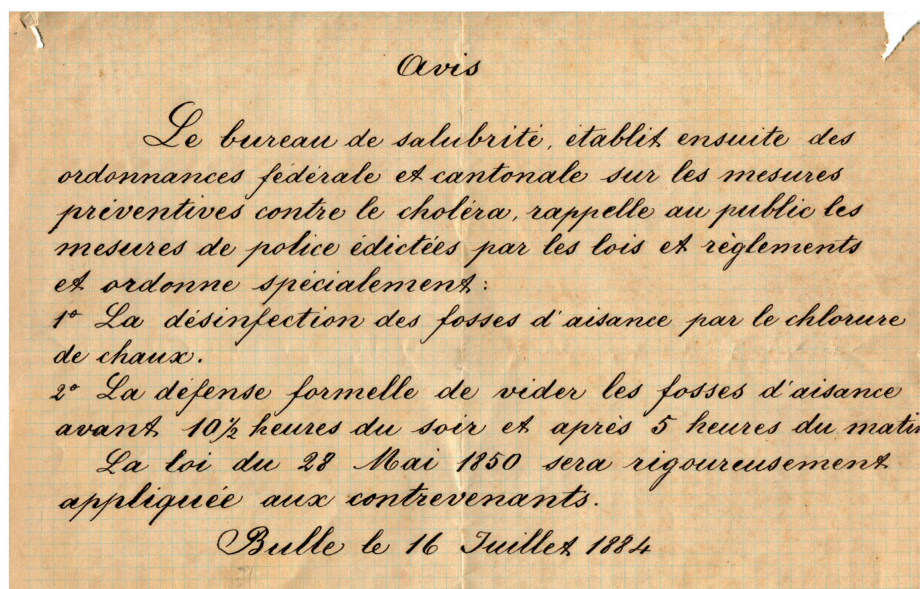 Avis
Le bureau de salubrité, établit ensuite des
ordonnances fédérale et cantonale sur les mesures
préventives contre le choléra, rappelle au public les
mesures de police édictées par les lois et règlements
et ordonne spécialement :
1° La désinfection des fosses d'aisance par le chlorure
de chaux.
2° La défense formelle de vider les fosses d'aisance
avant 10½ heures du soir et après 5 heures du matin
La loi du 28 Mai 1850 sera rigoureusement
appliquée aux contrevenants.
Bulle le 16 Juillet 1884